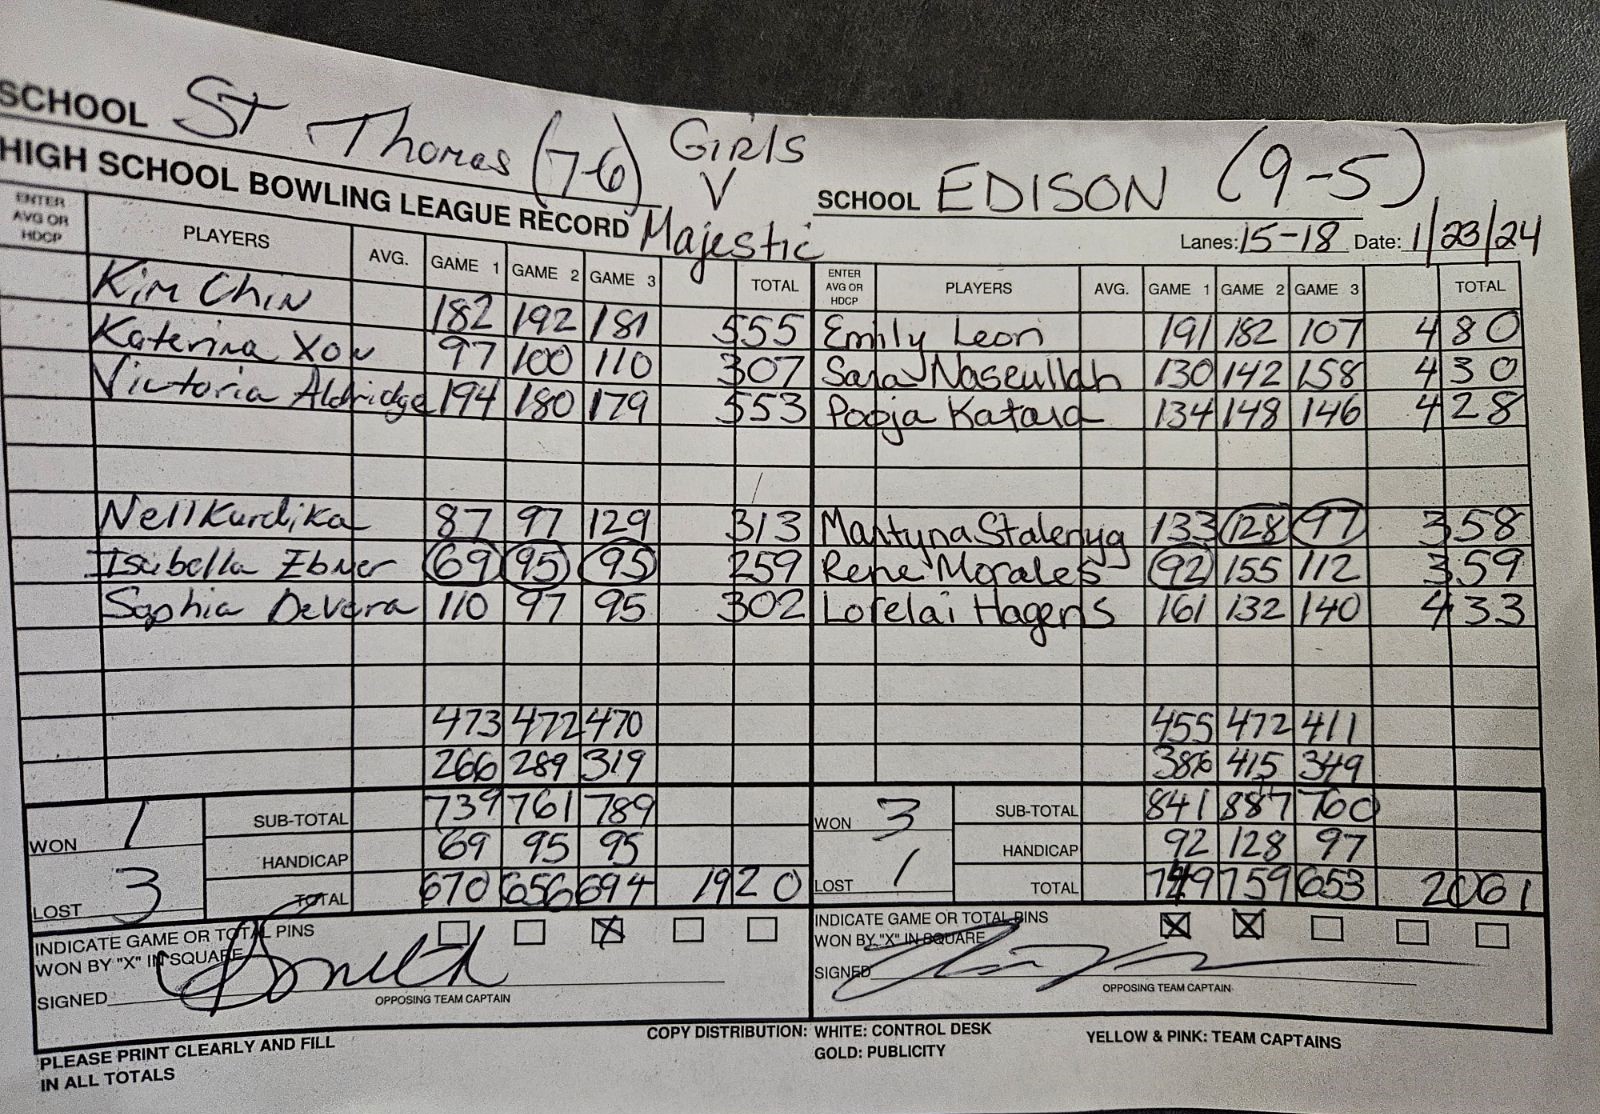 SCHOOL St Thomas (7-6) Girls V SCHOOL EDISON (9-5)
HIGH SCHOOL BOWLING LEAGUE RECORD Majestic Lanes: 15-18 Date: 1/23/24
ENTER AVG OR HDCP PLAYERS AVG. GAME 1 GAME 2 GAME 3 TOTAL ENTER AVG OR HDCP PLAYERS AVG. GAME 1 GAME 2 GAME 3 TOTAL
Kim Chin 182 192 181 555 Emily Leon 191 182 107 480
Katerina Xou 97 100 110 307 Sara Naseullah 130 142 158 430
Victoria Aldridge 194 180 179 553 Pooja Kataria 134 148 146 428
Nell Kurdika 87 97 129 313 Martyna Stalenyg 133 128 97 358
Isabella Ebner 69 95 95 259 Rene Morales 92 155 112 359
Sophia DeVera 110 97 95 302 Lorelai Hagens 161 132 140 433
473 472 470 455 472 411
266 289 319 386 415 349
WON 1 SUB-TOTAL 739 761 789 WON 3 SUB-TOTAL 841 887 760
HANDICAP 69 95 95 HANDICAP 92 128 97
LOST 3 TOTAL 670 656 694 1920 LOST 1 TOTAL 749 759 653 2061
INDICATE GAME OR TOTAL PINS WON BY "X" IN SQUARE X INDICATE GAME OR TOTAL PINS WON BY "X" IN SQUARE X X
SIGNED SIGNED
OPPOSING TEAM CAPTAIN OPPOSING TEAM CAPTAIN
PLEASE PRINT CLEARLY AND FILL IN ALL TOTALS
COPY DISTRIBUTION: WHITE: CONTROL DESK YELLOW & PINK: TEAM CAPTAINS
GOLD: PUBLICITY